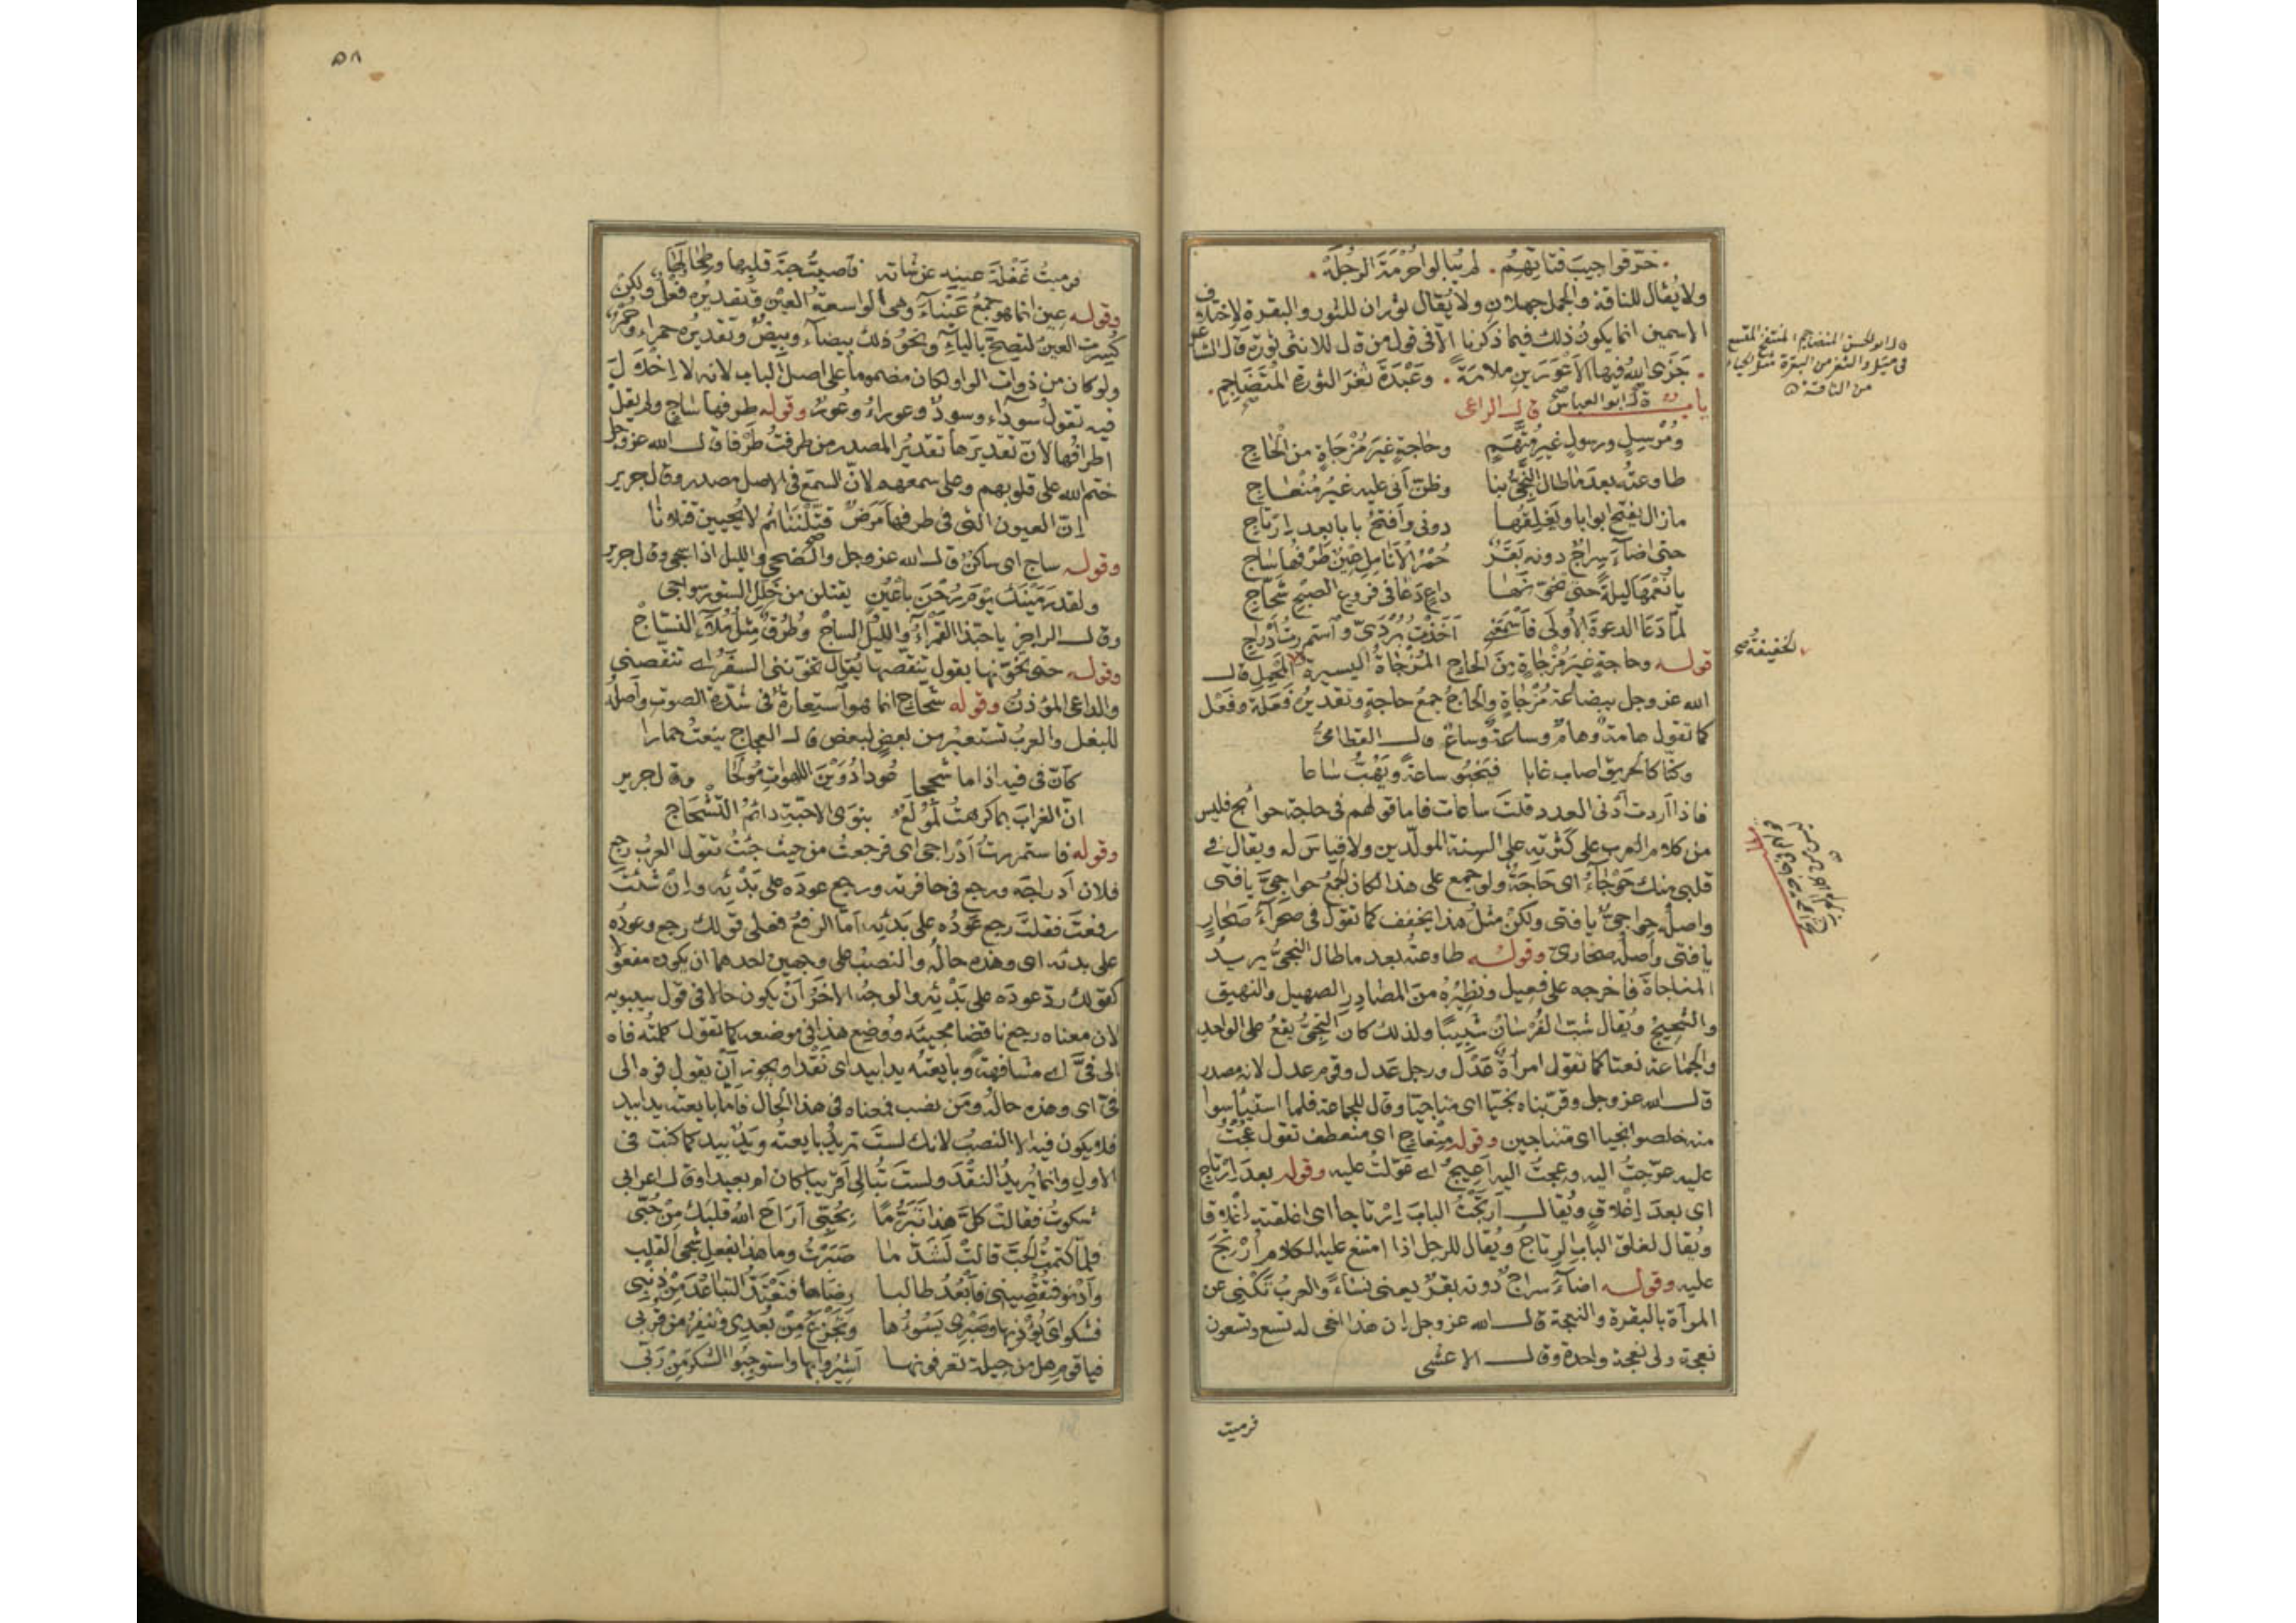 خرّقوا جيب فتاتهم . لم يبالوا حرمة الرجلة .
ولا يقال للناقة والجمل جملان ولا يقال ثوران للثور والبقرة لاختلاف
الاسمين انما يكون ذلك فيما ذكرنا الا في قول من قال للانثى ثورة قال الشاعر
جزى الله فيها الاعورين ملامة . وعبدة ثفر الثورة المتضاجم .
باب قال ابو العباس قال الراعى
ومرسل ورسول غير متهم وحاجة غير مزجاة من الحاج
طاوعته بعد ما طال النجىّ بنا وظن أنى عليه غير منعاج
مازال يفتح ابوابا ويغلقها دونى وأفتح بابا بعد إرتاج
حتى اضآء سراج دونه بقر حمر الأنامل عين طرفها ساج
يا نعمها ليلة حتى تخوّنها داع دعا فى فروع الصبح شحّاج
لمّا دعا الدعوة الأولى فأسمعنى أخذت بردىّ واستمررت أدراجى
قوله وحاجة غير مزجاة من الحاج المزجاة اليسيرة المحمل قال
الله عز وجل ببضاعة مزجاة والحاج جمع حاجة وتقديره فعلة وفعل
كما تقول هامة وهام وساعة وساع قال القطامىّ
وكنّا كالحريق اصاب غابا فيخبو ساعة ويهبّ ساعا
فاذا أردت أدنى العدد قلت ساعات فاما قولهم فى حاجة حوائج فليس
من كلام العرب على كثرته على السنة المولّدين ولا قياس له ويقال فى
قلبى منك حوجاء اى حاجة ولو جمع على هذا لكان الجمع حواجىّ يا فتى
واصله حواجىّ يا فتى ولكن مثل هذا يخفف كما تقول فى صحرآء صحار
يا فتى وأصله صحارىّ وقوله طاوعته بعد ما طال النجىّ يريد
المناجاة فاخرجه على فعيل ونظيره من المصادر الصهيل والنهيق
والشحيج ويقال شبّ الفرسان شبيبا ولذلك كان النجىّ يقع على الواحد
والجماعة نعتا كما تقول امرأة عدل ورجل عدل وقوم عدل لانه مصدر
قال الله عز وجل وقرّبناه نجيّا اى مناجيا وقال للجماعة فلما استيأسوا
منه خلصوا نجيا اى متناجين وقوله منعاج اى منعطف تقول عجت
عليه عوّجت اليه وعجت اليه أعيج اى عوّلت عليه وقوله بعد إرتاج
اى بعد إغلاق ويقال أرتجت الباب إرتاجا اى اغلقته إغلاقا
ويقال لغلق الباب الرتاج ويقال للرجل اذا امتنع عليه الكلام أرتج
عليه وقوله اضاء سراج دونه بقر يعنى نساء والعرب تكنى عن
المرأة بالبقرة والنعجة قال الله عز وجل إن هذا اخى له تسع وتسعون
نعجة ولى نعجة واحدة وقال الاعشى
فرميت
قال ابو الحسن المتضاجم المنتفخ المتسع
من الناقة
الخفيفة صح
٥٨
فرميت غفلة عينه عن شاته فأصبت حبّة قلبها وطحالها
وقوله عين انما هو جمع عيناء وهى الواسعة العين وتقديره فعل ولكن
كسرت العين لتصحّ الياء ونحو ذلك بيضاء وبيض وتقديره حمراء وحمر
ولو كان من ذوات الواو لكان مضموما على اصل الباب لانه لا إخلال
فيه تقول سوداء وسود وعوراء وعور وقوله طرفها ساج ولم يقل
اطرافها لأن تقديرها تقدير المصدر من طرفت طرفا قال الله عز وجل
ختم الله على قلوبهم وعلى سمعهم لانّ السمع فى الاصل مصدر وقال جرير
إنّ العيون التى فى طرفها مرض قتلننا ثم لا يحيين قتلانا
وقوله ساج اى ساكن قال الله عز وجل والضحى والليل اذا سجى وقال جرير
ولقد رمينك يوم رحن بأعين يقتلن من خلل الستور سواجى
وقال الراجز يا حبّذا القمراء والليل الساج وطرق مثل ملاء النسّاج
وقوله حتى تخوّنها يقول تنقصها يقال تخوّننى السفر اى تنقصنى
والداعى المؤذن وقوله شحاج انما هو استعارة فى شدّة الصوت وأصله
للبغل والعرب تستعير من بعض لبعض قال العجاج ينعت حمارا
كأنّ فى فيه اذا ما شحجا عودا دوين اللهوات مولجا وقال جرير
انّ الغراب بما كرهت لمولع بنوى الاحبّة دائم التشحاج
وقوله فاستمررت أدراجى اى فرجعت من حيث جئت تقول العرب رجع
فلان أدراجه ورجع فى حافرته ورجع عوده على بدئه وإن شئت
رفعت فقلت رجع عوده على بدئه، أمّا الرفع فعلى قولك رجع وعوده
على بدئه اى وهذه حاله والنصب على وجهين احدهما ان يكون مفعولا
كقولك ردّ عوده على بدئه والوجه الاخر أن يكون حالا فى قول سيبويه
لان معناه رجع ناقضا مجيئه ووضع هذا فى موضعه كما تقول كلمته فاه
الى فىّ اى مشافهة وبايعته يدا بيد اى نقدا ويجوز أن تقول فوه الى
فىّ اى وهذه حاله ومن نصب فمعناه فى هذا الحال فأما بايعته يدا بيد
فلا يكون فيه الا النصب لانك لست تريد بايعته ويد بيد كما كنت فى
الاول وانما يريد النقد ولست تبالى أقريبا كان ام بعيدا وقال اعرابى
شكوت فقالت كلّ هذا تبرّما بحبّى أراح الله قلبك من حبّى
فلما كتمت الحبّ قالت لشدّ ما صبرت وما هذا بفعل شجى القلب
وأدنو فتقصينى فأبعد طالبا رضاها فتعتدّ التباعد من ذنبى
فشكواى تؤذيها وصبرى يسوءها وتجزع من بعدى وتنفر من قربى
فيا قوم هل من حيلة تعرفونها أشيروا بها واستوجبوا الشكر من ربّى